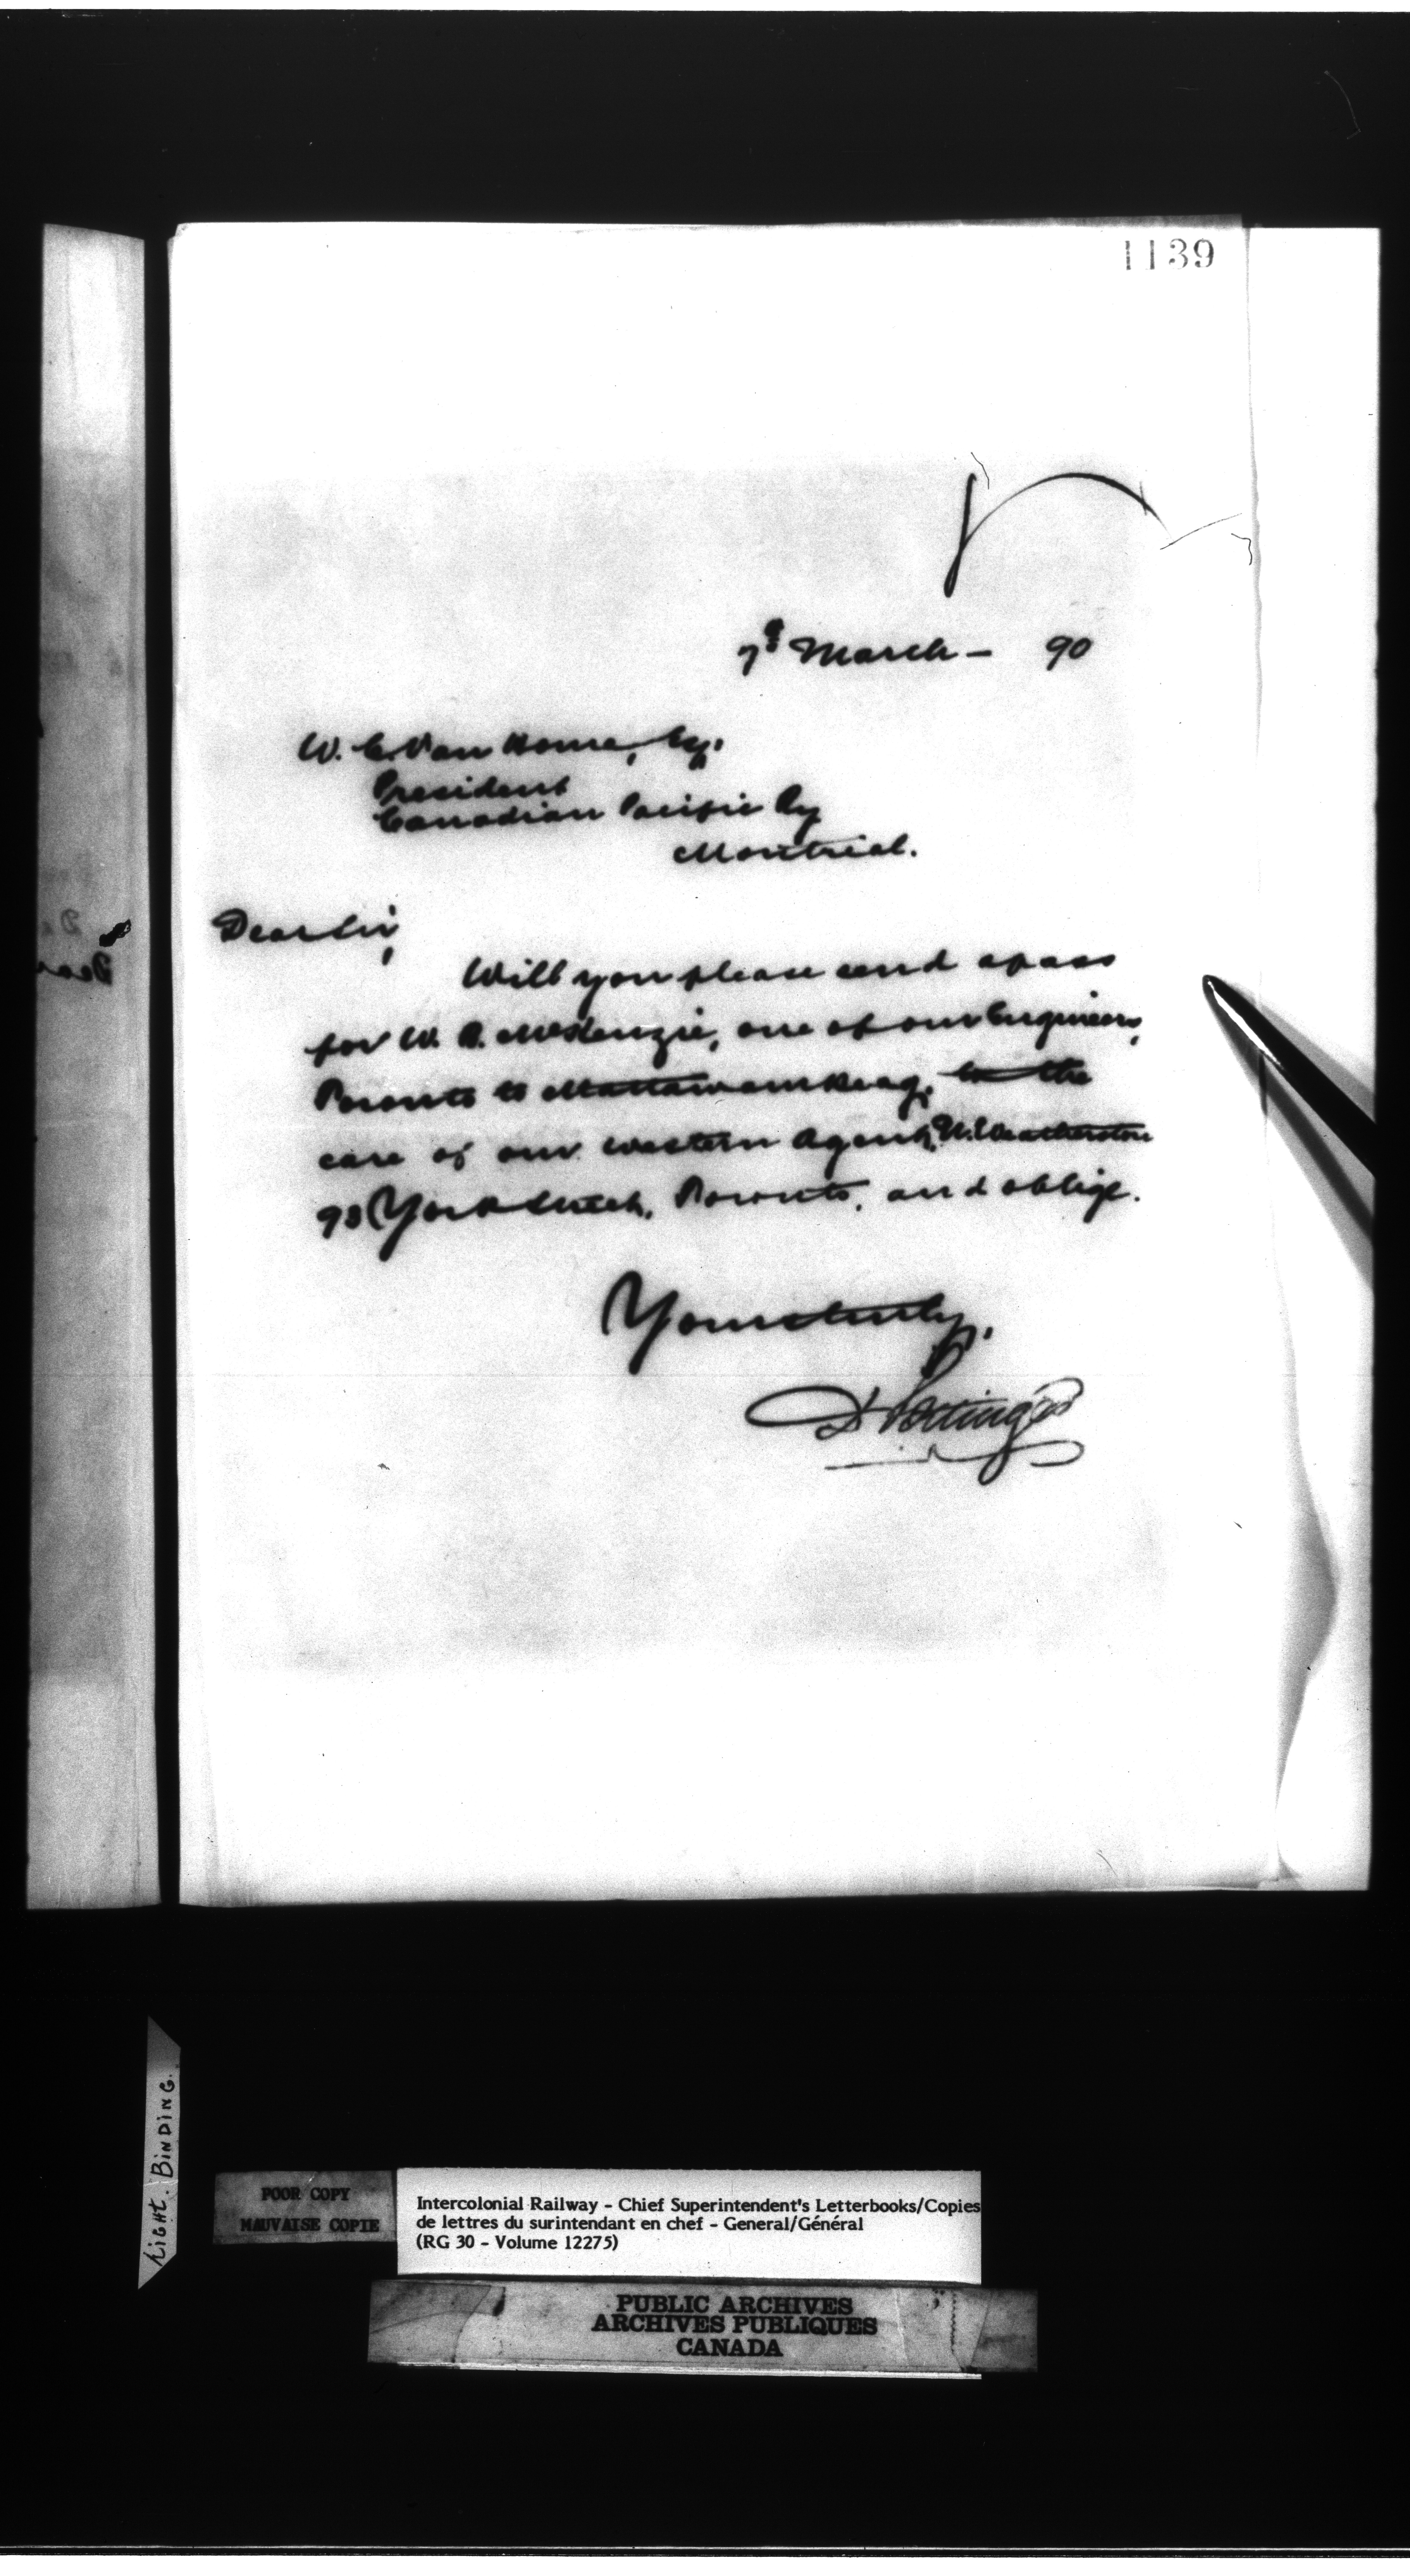 1139
7th March — 90
W. C. Van Horne, Esq.
President
Canadian Pacific Ry
Montreal.
Dear Sir,
Will you please send a pass
for W. B. McKenzie, one of our Engineers,
Toronto to Mattawamkeag, to the
care of our western Agent, N. Weatherston
93 York Street, Toronto, and oblige.
Yours truly,
D Pottinger
Tight. Binding.
POOR COPY
MAUVAISE COPIE
Intercolonial Railway - Chief Superintendent's Letterbooks/Copies
de lettres du surintendant en chef - General/Général
(RG 30 - Volume 12275)
PUBLIC ARCHIVES
ARCHIVES PUBLIQUES
CANADA